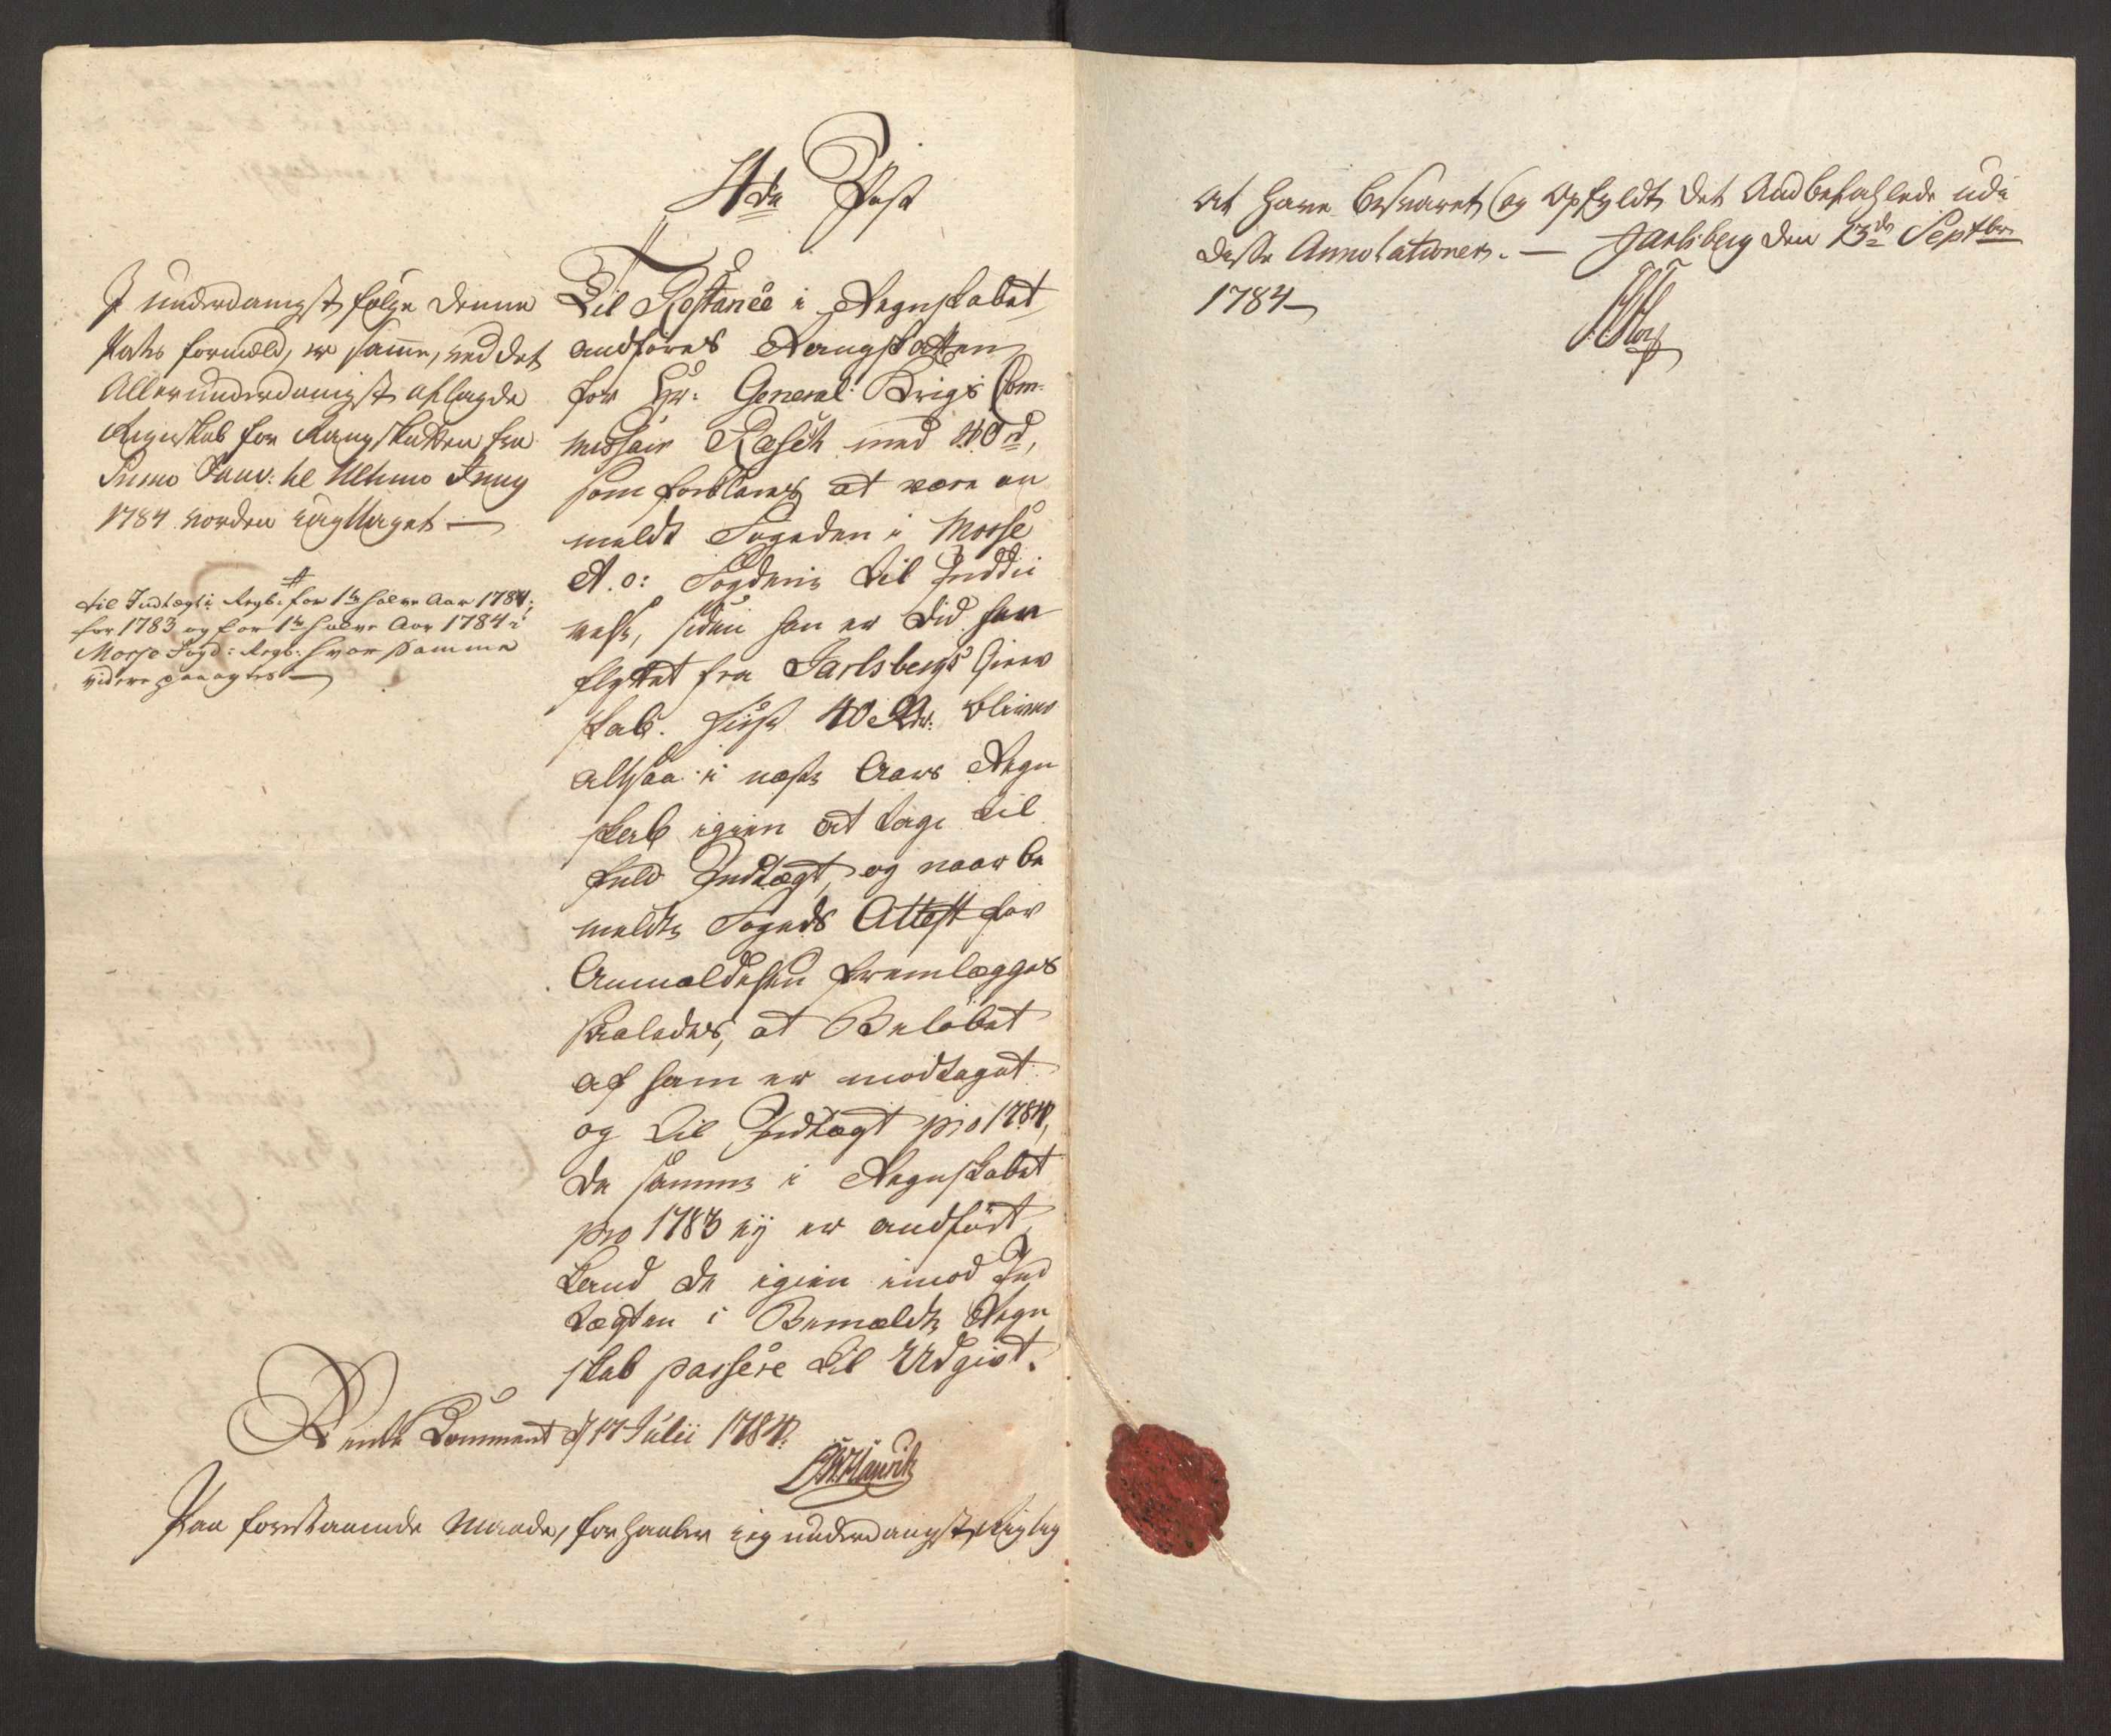 4de Post
I underdanigst følge denne
Posts formæld, er samme, ved det
Allerunderdanigst aflagde
Regnskab for Rangskatten fra
Primo Janv: til Ultimo Juny
1784 vorden iagttaget —
til Indtægt i Regb: for 1te halve Aar 1784;
for 1783 og for 1te halve Aar 1784 i
Mosse Fogd: Regb: hvor samme
videre paaagtes —
Til Restance i Regnskabet
andføres Rangskatten
for Hr: General Krigs Com-
missair Rasch med 40 rd,
som forklares at være an
meldt Fogeden i Mosse
etc: Fogderie til Inddri
velse, siden han er did hen
flyttet fra Jarlsbergs Grev
skab. Disse 40 Rdr: bliver
altsaa i næste Aars Regn
skab igien at tage til
fuld Indtægt, og naar be
meldte Fogeds Attest for
Anmældelsen fremlægges
saaledes, at Beløbet
af ham er modtaget
og til Indtægt pro 1784,
da samme i Regnskabet
pro 1783 ej er andført,
kand de igien imod Ind
tægten i Bemældte Regn
skab passere til Udgivt.
Rente Cammeret d 17 Julii 1784.
Paa forestaaende Maade, forhaaber jeg underdanigst rigtig
at have besvaret og opfyldt det Andbefahlede udi
disse Annotationer. — Jarlsberg den 13de Septbr
1784